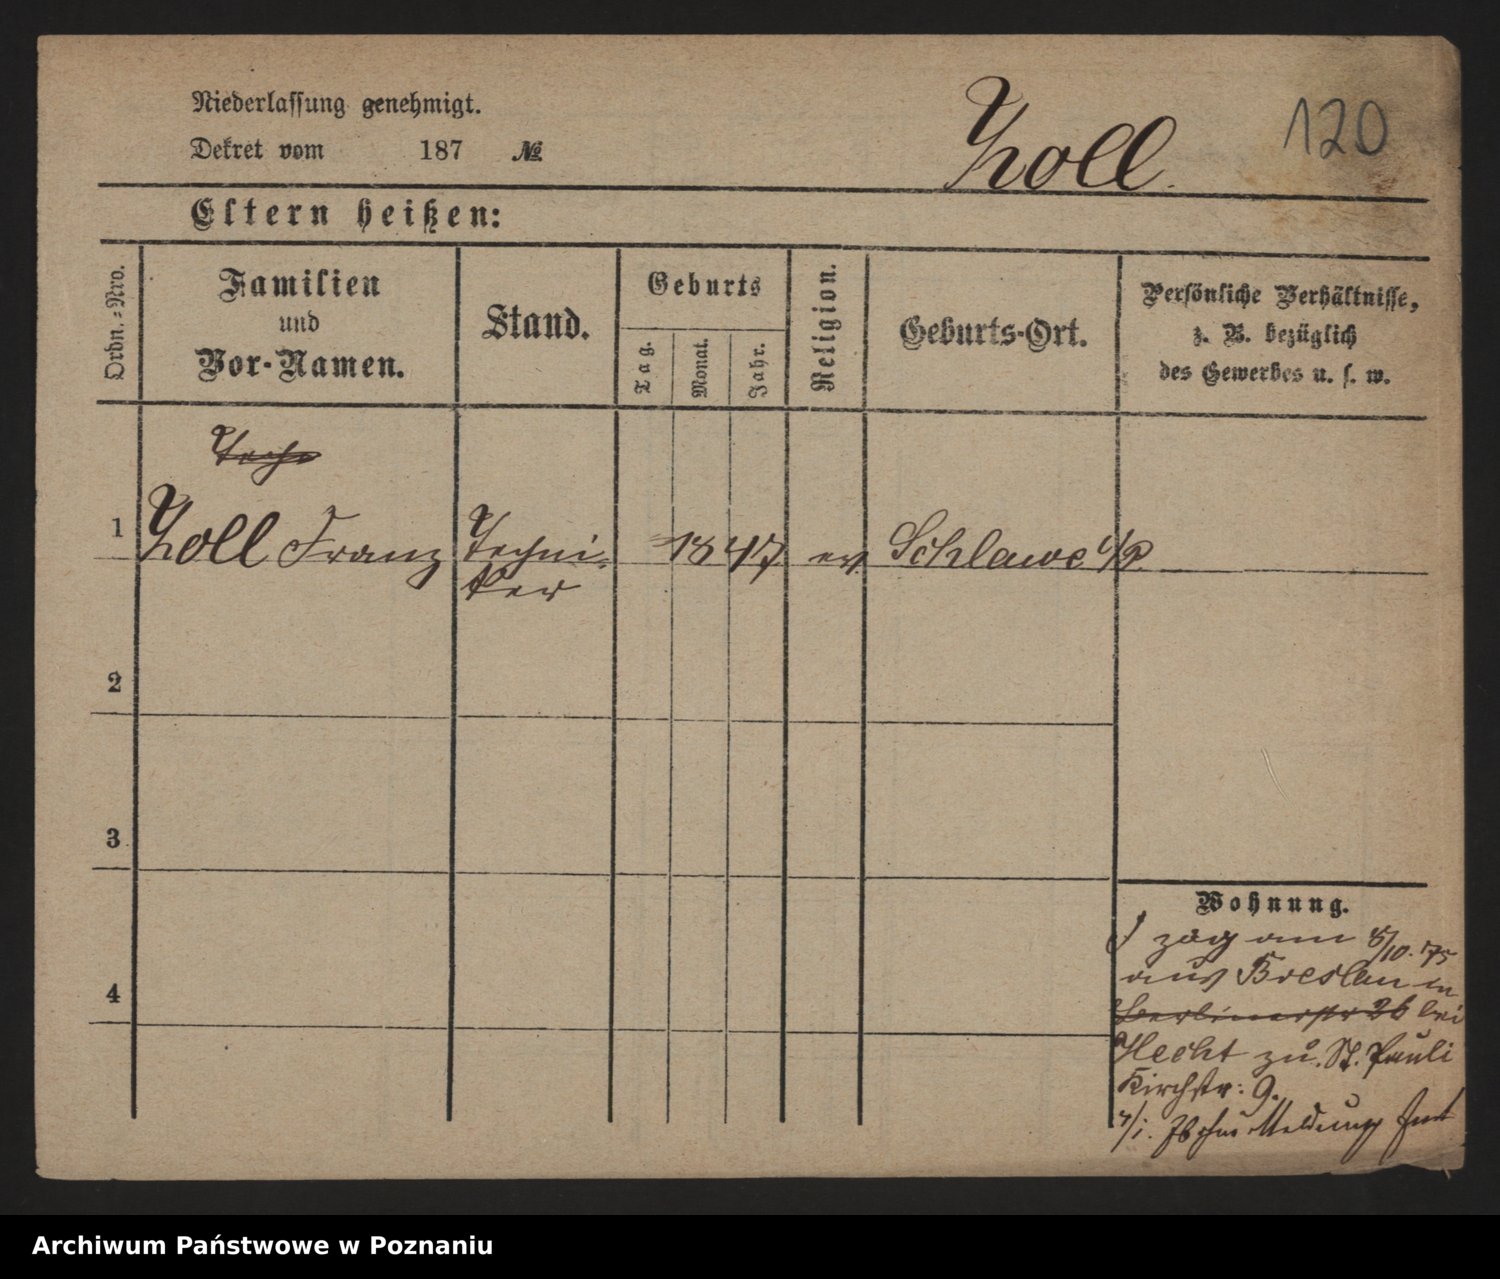 Niederlassung genehmigt.
Dekret vom 187 №
Zoll.
120
Eltern heißen:
Ordn.-Nro.
Familien
und
Vor-Namen.
Stand.
Geburts
Tag.
Monat.
Jahr.
Religion.
Geburts-Ort.
Persönliche Verhältnisse,
z. B. bezüglich
des Gewerbes u. s. w.
Tech
1 Zoll Franz Techni- 1847 ev. Schlawe i/P.
ker
2
3
4
Wohnung.
zog am 5/10. 75
aus Breslau in
Berlinerstr 26 bei
Hecht zu. St. Pauli
Kirchstr: 9.
Meldung fort
Archiwum Państwowe w Poznaniu